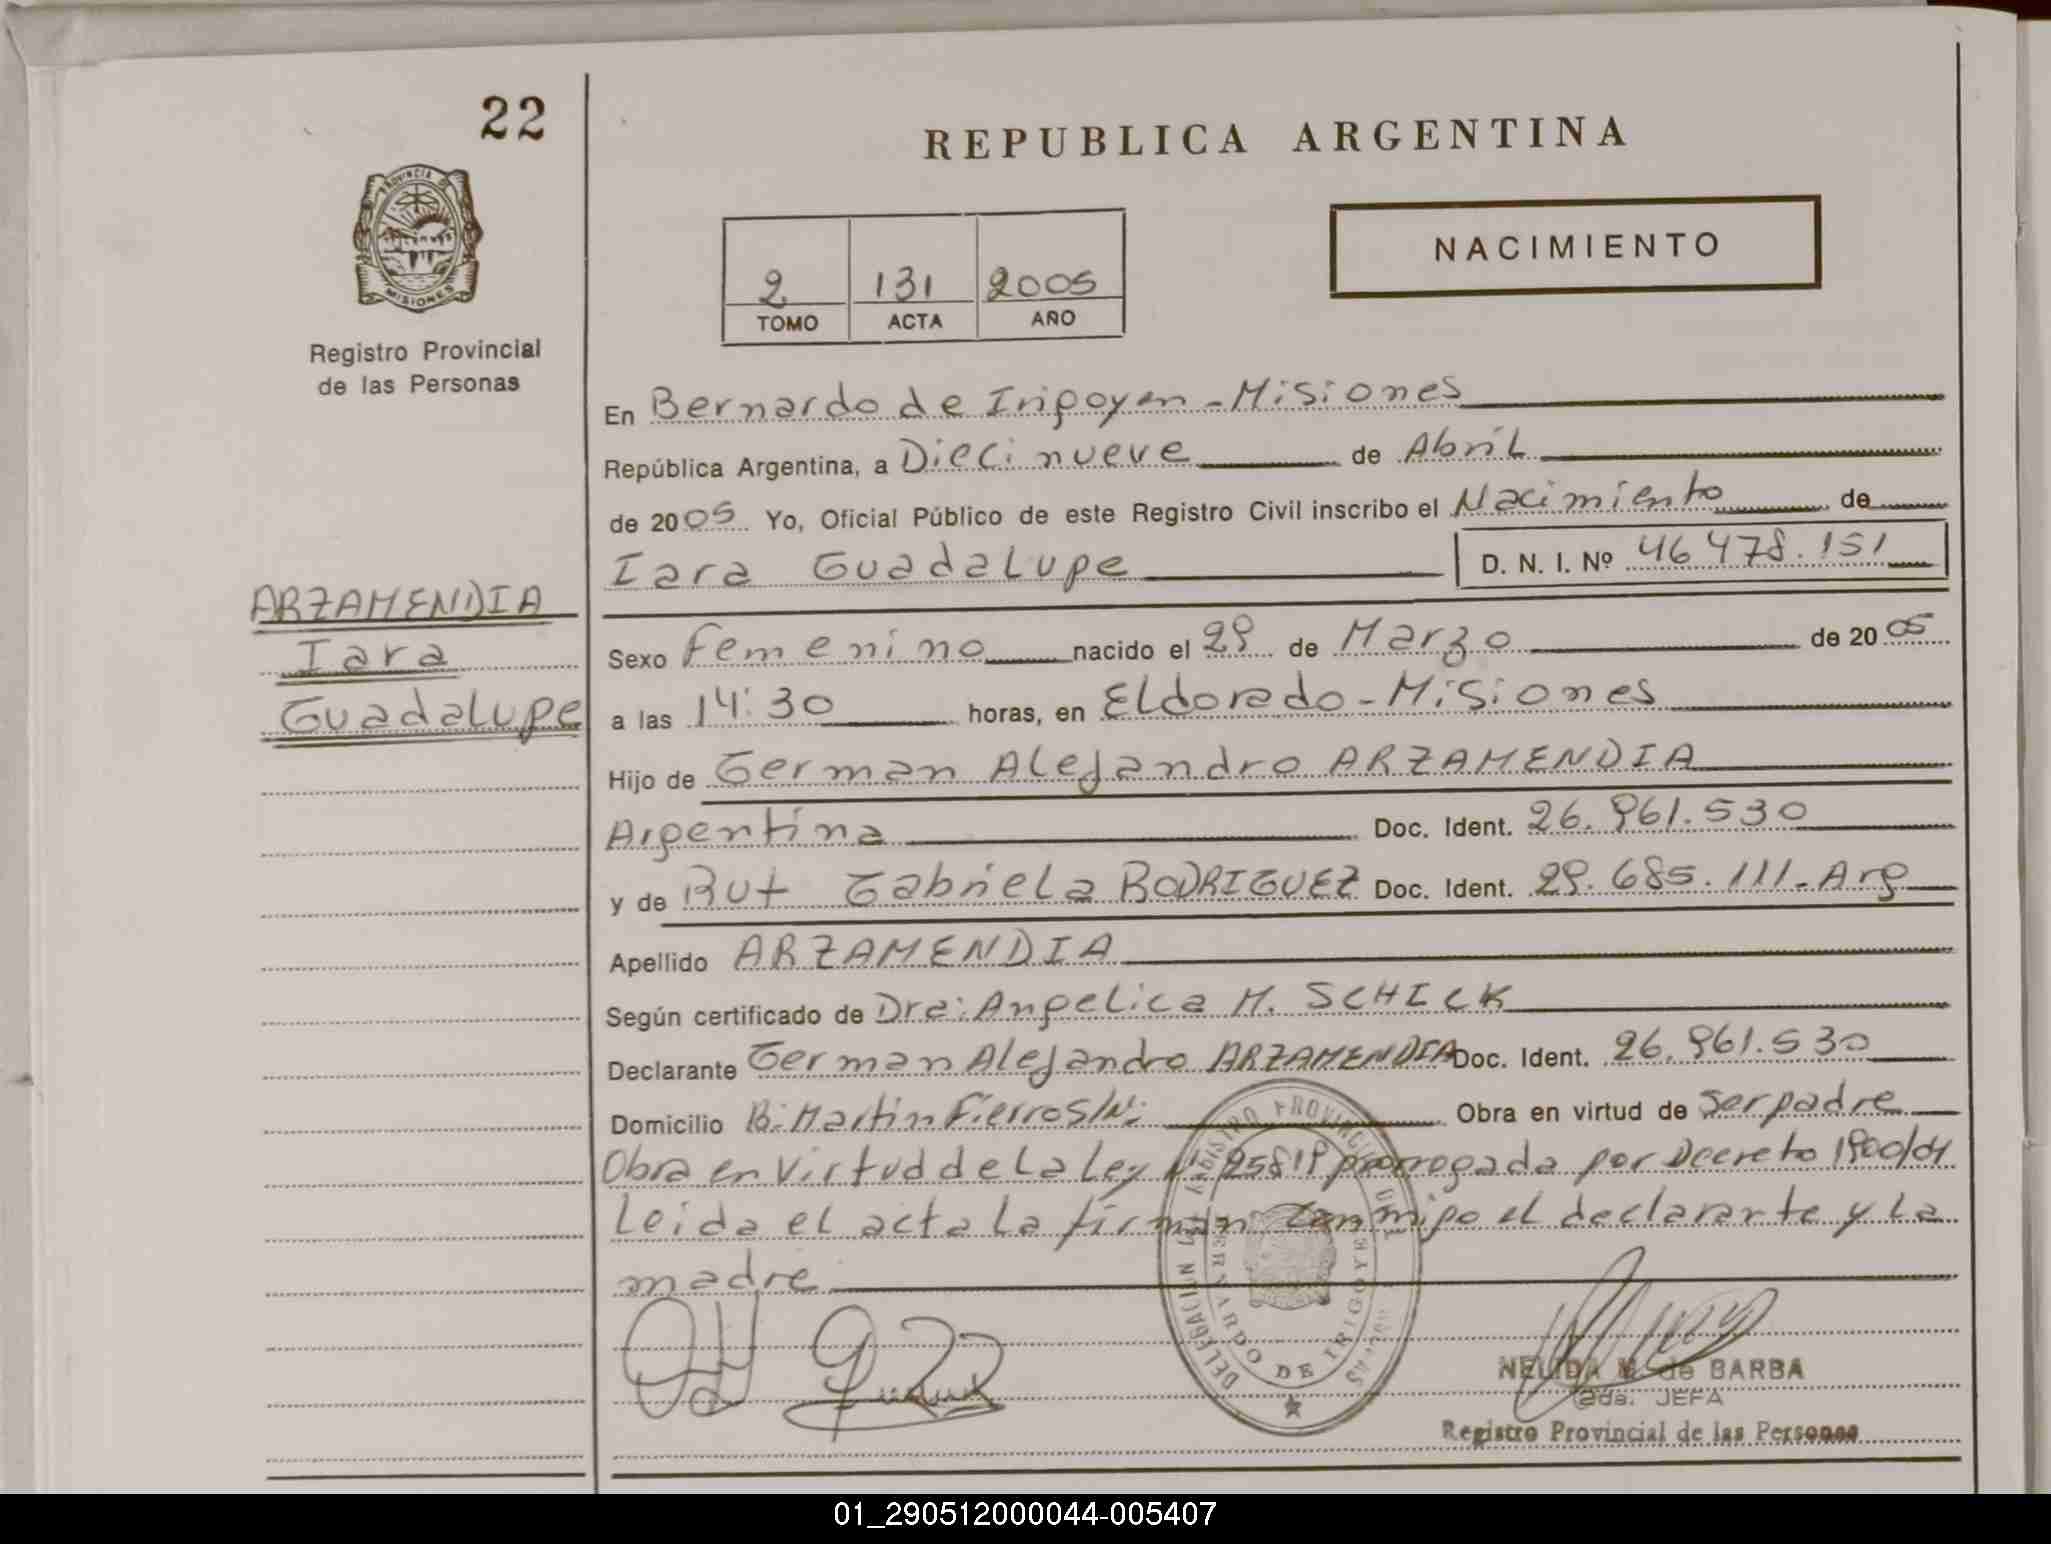 22
PROVINCIA DE
MISIONES
Registro Provincial
de las Personas
ARZAMENDIA
Iara
Guadalupe
REPUBLICA ARGENTINA
NACIMIENTO
2 131 2005
TOMO ACTA AÑO
En Bernardo de Iripoyen - Misiones
República Argentina, a Dieci nueve de Abril
de 2005 Yo, Oficial Público de este Registro Civil inscribo el Nacimiento de
Iara Guadalupe D. N. I. Nº 46 478.151
Sexo Femenino nacido el 29 de Marzo de 2005
a las 14:30 horas, en Eldorado - Misiones
Hijo de German Alejandro ARZAMENDIA
Argentina Doc. Ident. 26.961.530
y de Rut Gabriela RODRIGUEZ Doc. Ident. 29.685.111 - Arg
Apellido ARZAMENDIA
Según certificado de Dra: Angelica M. SCHICK
Declarante German Alejandro ARZAMENDIA Doc. Ident. 26.961.530
Domicilio B: Martin Fierro S/N: Obra en virtud de Ser padre
Obra en Virtud de La Ley Nº 25819 prorrogada por Decreto 1900/04
Leida el acta La firman conmigo el declarante y La
madre
REGISTRO PROVINCIAL DE LAS PERSONAS
DELEGACION
BERNARDO DE IRIGOYEN
NELIDA M. de BARBA
2da. JEFA
Registro Provincial de las Personas
01_290512000044-005407